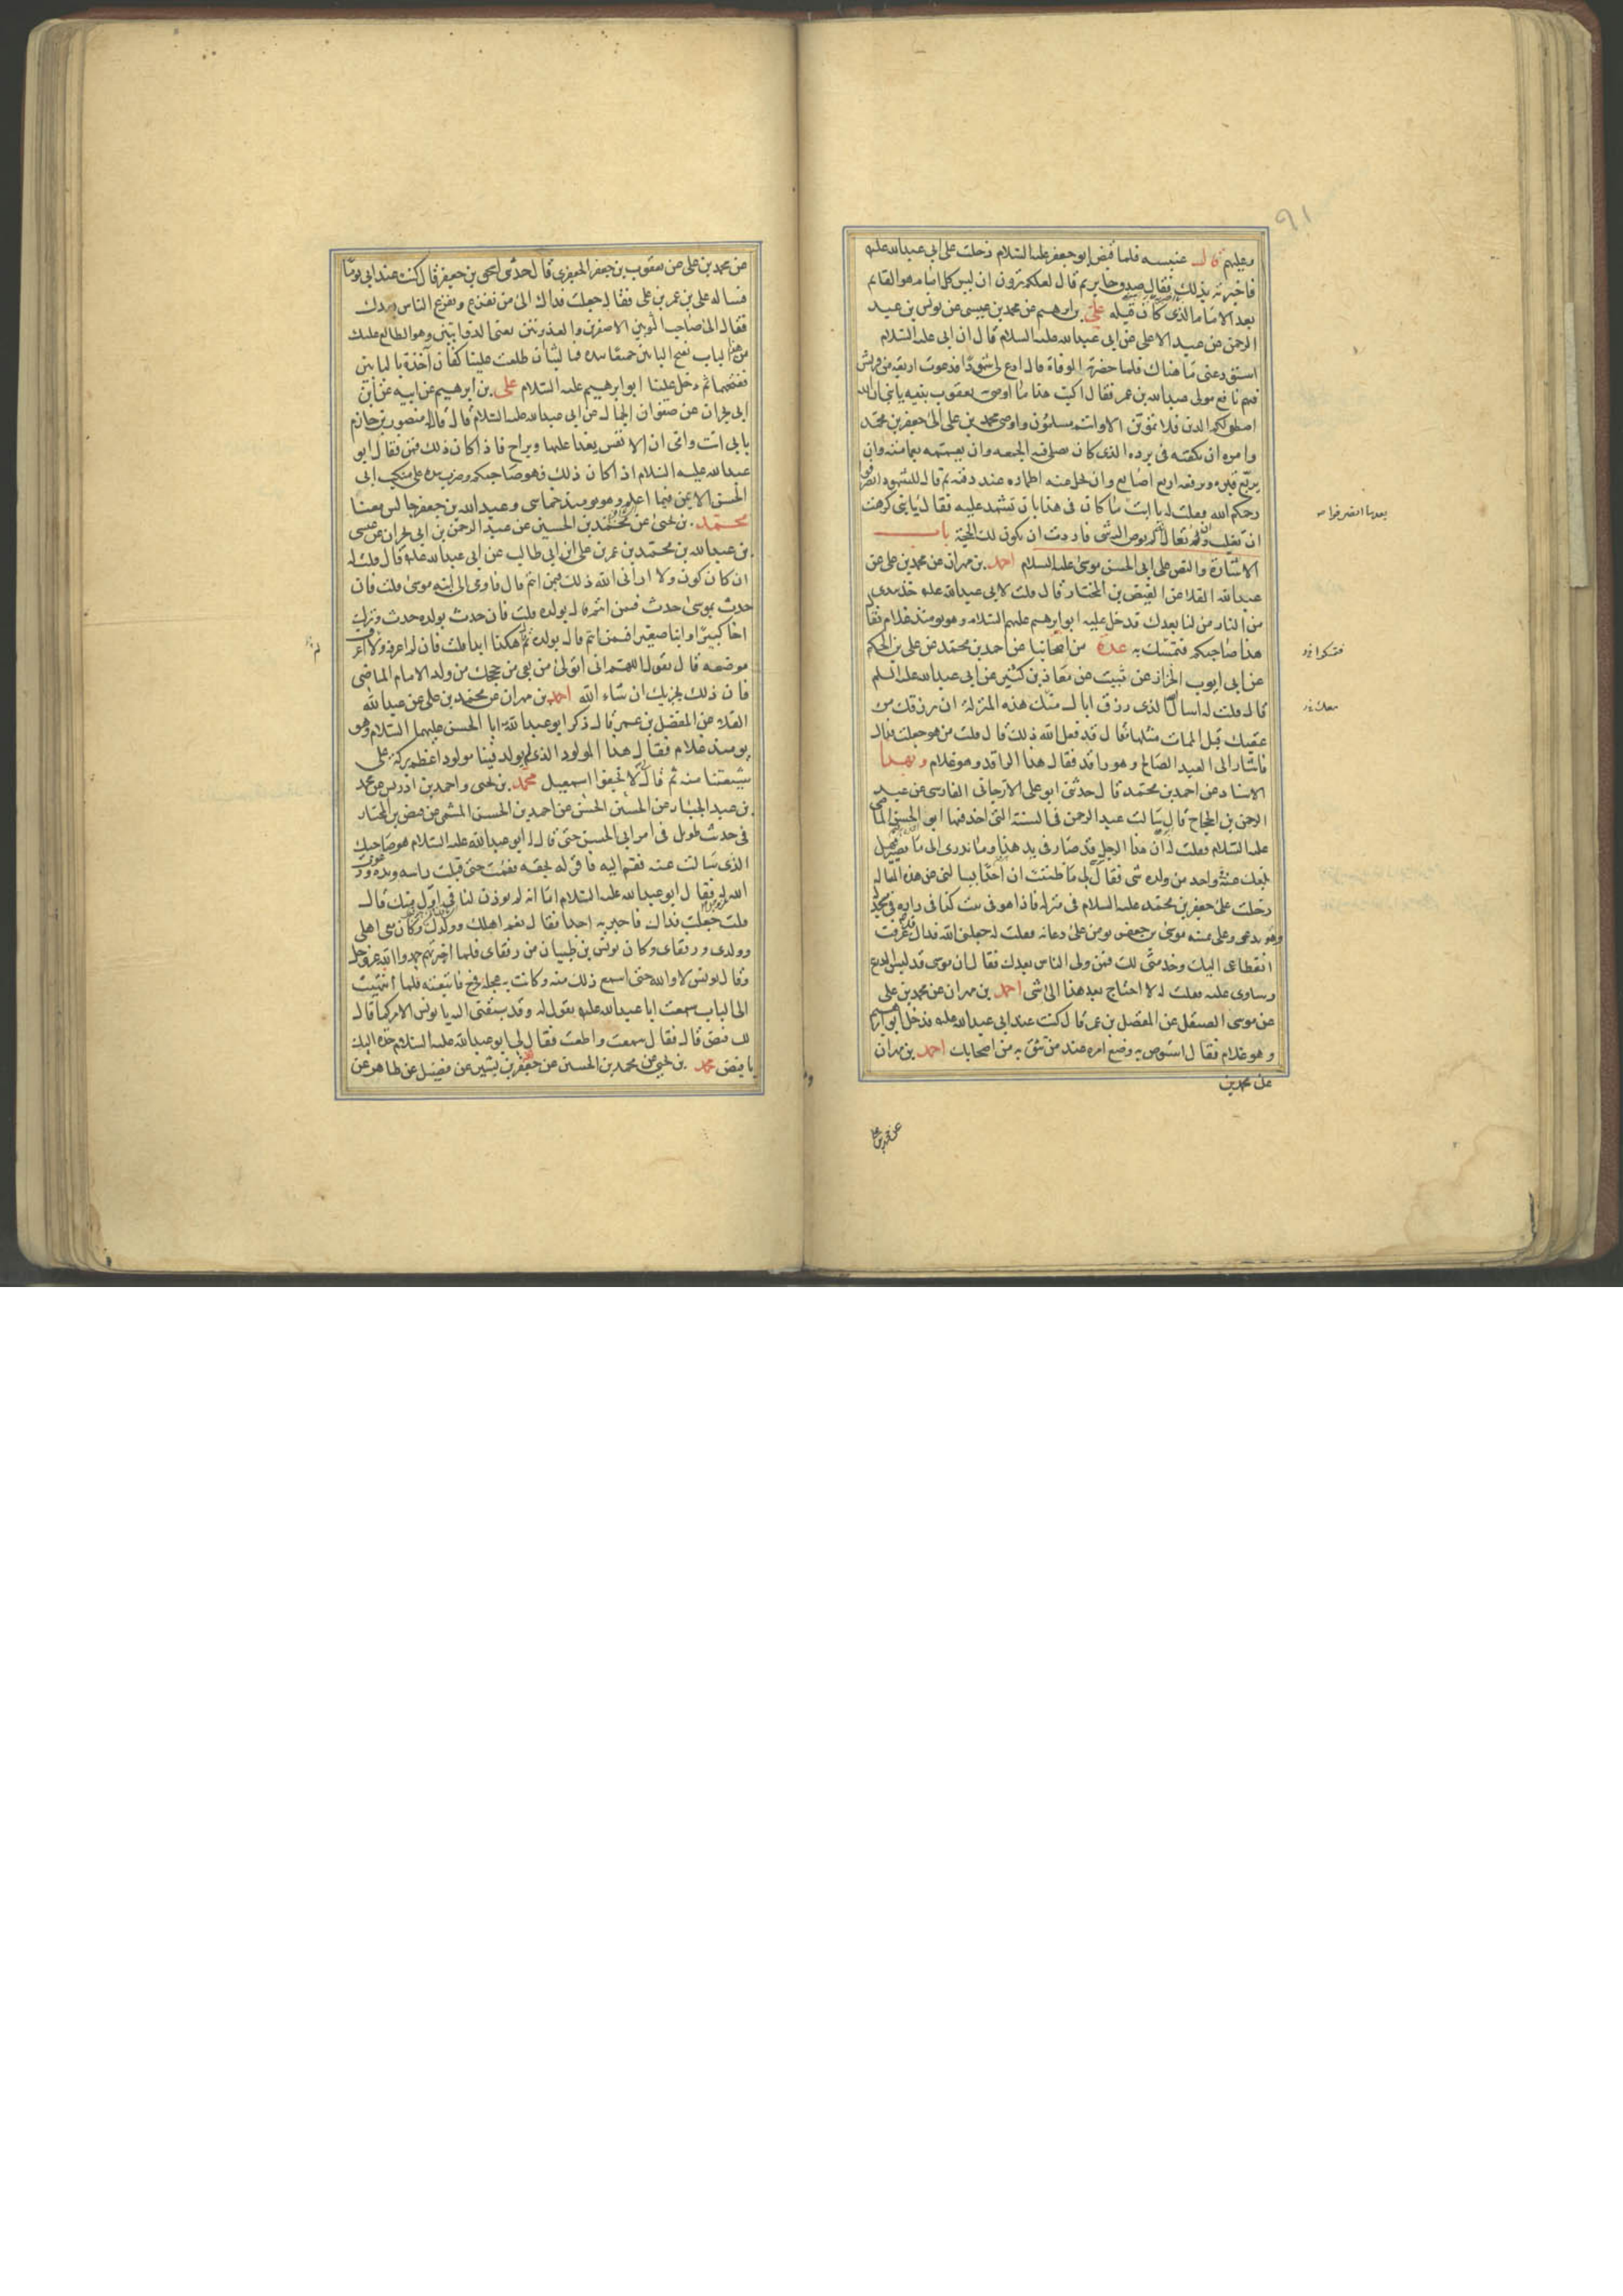 ٩١
وعليهم قال عنبسه فلما قبض ابو جعفر عليه السلام دخلت على ابي عبد الله عليه
فاخبرته بذلك فقال صدق جابر ثم قال لعلكم ترون ان ليس كل امام هو القائم
بعد الامام الذي كان قبله علي بن ابرهيم عن محمد بن عيسى عن يونس بن عبد
الرحمن عن عبد الاعلى عن ابي عبد الله عليه السلام قال ان ابي عليه السلام
استودعني ما هناك فلما حضرته الوفاة قال ادع لي شهودا فدعوت اربعة من قريش
فيهم نافع مولى عبد الله بن عمر فقال اكتب هذا ما اوصى به يعقوب بنيه يا بني ان الله
اصطفى لكم الدين فلا تموتن الا وانتم مسلمون واوصى محمد بن علي الى جعفر بن محمد
وامره ان يكفنه في برده الذي كان يصلي فيه الجمعه وان يعممه بعمامته وان
يربع قبره ويرفعه اربع اصابع وان يحل عنه اطماره عند دفنه ثم قال للشهود انصرفوا
رحمكم الله فقلت له يا ابت ما كان في هذا بان تشهد عليه فقال يا بني كرهت
ان تغلب وان يقال انه لم يوص اليه فاردت ان تكون لك الحجة باب
الاشارة والنص على ابي الحسن موسى عليه السلام احمد بن مهران عن محمد بن علي عن
عبد الله القلا عن الفيض بن المختار قال قلت لابي عبد الله عليه خذ بيدي
من النار من لنا بعدك فدخل عليه ابو ابرهيم عليهم السلام وهو يومئذ غلام فقال
هذا صاحبكم فتمسك به عدة من اصحابنا عن احمد بن محمد عن علي بن الحكم
عن ابي ايوب الخزاز عن ثبيت عن معاذ بن كثير عن ابي عبد الله عليه السلم
قال قلت له اسال الله الذي رزق اباك منك هذه المنزلة ان يرزقك من
عقبك قبل الممات مثلها فقال قد فعل الله ذلك قال قلت من هو جعلت فداك
فاشار الى العبد الصالح وهو راقد فقال هذا الراقد وهو غلام وبهذا
الاسناد عن احمد بن محمد قال حدثني ابو علي الارجاني الفارسي عن عبد
الرحمن بن الحجاج قال سالت عبد الرحمن في السنة التي اخذ فيها ابو الحسن الماضي
عليه السلام فقلت له ان هذا الرجل قد صار في يد هذا وما ندري الى ما يصير فهل
بلغك عنه في واحد من ولده شي فقال لي ما ظننت ان احدا يسالني عن هذه المسالة
دخلت على جعفر بن محمد عليه السلام في منزله فاذا هو في بيت كذا في داره في مسجد له
وهو يدعو وعلى يمينه موسى بن جعفر يومن على دعائه فقلت له جعلني الله فداك قد عرفت
انقطاعي اليك وخدمتي لك فمن ولي الناس بعدك فقال ان موسى قد لبس الدرع
وساوى عليه فقلت له لا احتاج بعد هذا الى شي احمد بن مهران عن محمد بن علي
عن موسى الصيقل عن المفضل بن عمر قال كنت عند ابي عبد الله عليه فدخل ابو ابرهيم
وهو غلام فقال استوص به وضع امره عند من تثق به من اصحابك احمد بن مهران
عن محمد بن
عن محمد بن علي
عن محمد بن علي عن يعقوب بن جعفر الجعفري قال حدثني اسحق بن جعفر قال كنت عند ابي يوما
فساله علي بن عمر بن علي فقال جعلت فداك الى من نفزع ويفزع الناس بعدك
فقال الى صاحب الثوبين الاصفرين والغديرتين يعني الذوابتين وهو الطالع عليك
من هذا الباب يفتح البابين جميعا بيده فما لبثنا ان طلعت علينا كفان آخذة بالبابين
ففتحهما ثم دخل علينا ابو ابرهيم عليه السلام علي بن ابرهيم عن ابيه عن ابن
ابي نجران عن صفوان الجمال عن ابي عبد الله عليه السلام قال قال له منصور بن حازم
بابي انت وامي ان الانفس يغدا عليها ويراح فاذا كان ذلك فمن فقال ابو
عبد الله عليه السلام اذا كان ذلك فهو صاحبكم وضرب بيده على منكب ابي
الحسن الايمن فيما اعلم وهو يومئذ خماسي وعبد الله بن جعفر جالس معنا
محمد بن يحيى عن محمد بن الحسين عن عبد الرحمن بن ابي نجران عن عيسى
بن عبد الله بن محمد بن عمر بن علي بن ابي طالب عن ابي عبد الله عليه قال قلت له
ان كان كون ولا اراني الله ذلك فبمن ائتم قال فاومى الى ابنه موسى قلت فان
حدث بموسى حدث فبمن ائتم قال بولده قلت فان حدث بولده حدث وترك
اخا كبيرا وابنا صغيرا فبمن ائتم قال بولده ثم هكذا ابدا قلت فان لم اعرفه ولا اعرف
موضعه قال تقول اللهم اني اتولى من بقي من حججك من ولد الامام الماضي
فان ذلك يجزيك ان شاء الله احمد بن مهران عن محمد بن علي عن عبد الله
القلا عن المفضل بن عمر قال ذكر ابو عبد الله ابا الحسن عليهما السلام وهو
يومئذ غلام فقال هذا المولود الذي لم يولد فينا مولود اعظم بركة على
شيعتنا منه ثم قال لا تجفوا اسمعيل محمد بن يحيى واحمد بن ادريس عن محمد
بن عبد الجبار عن الحسن بن الحسين عن احمد بن الحسن الميثمي عن فيض بن المختار
في حديث طويل في امر ابي الحسن حتى قال له ابو عبد الله عليه السلام هو صاحبك
الذي سالت عنه فقم اليه فاقر له بحقه فقمت حتى قبلت راسه ويده ودعوت
الله له فقال ابو عبد الله عليه السلام اما انه لم يوذن لنا في اول منك قال
قلت جعلت فداك فاخبر به احدا فقال نعم اهلك وولدك وكان معي اهلي
وولدي ورفقاي وكان يونس بن ظبيان من رفقاي فلما اخبرتهم حمدوا الله عز وجل
وقال يونس لا والله حتى اسمع ذلك منه وكانت به عجلة فخرج فاتبعته فلما انتهيت
الى الباب سمعت ابا عبد الله عليه يقول له وقد سبقني اليه يا يونس الامر كما قال
لك فيض قال فقال سمعت واطعت فقال لي ابو عبد الله عليه السلام خذه اليك
يا فيض محمد بن يحيى عن محمد بن الحسين عن جعفر بن بشير عن فضيل عن طاهر عن